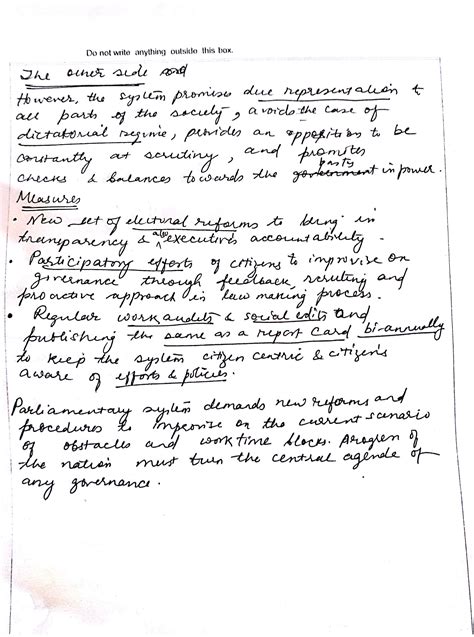 Do not write anything outside this box.
The other side
However, the system promises due representation to
all parts of the society, avoids the case of
dictatorial regime, provides an opposition to be
constantly at scrutiny, and promotes
checks & balances towards the party government in power.
Measures
• New set of electoral reforms to bring in
transparency & also executive's accountability.
• Participatory efforts of citizens to improvise on
governance through feedback, scrutiny and
proactive approach in law making process.
• Regular work audits & social edits and
publishing the same as a report card bi-annually
to keep the system citizen centric & citizens
aware of efforts & policies.
Parliamentary system demands new reforms and
procedures to improvise on the current scenario
of obstacles and work time blocks. of
the nation must turn the central agenda of
any governance.